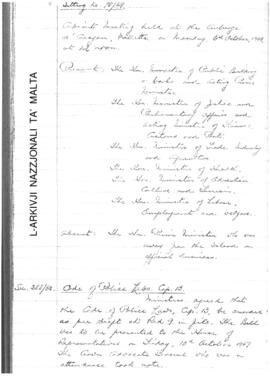 L-ARKIVJI NAZZJONALI TA' MALTA
Sitting No. 78/69.
Cabinet meeting held at the Auberge
d'Aragon, Valletta on Monday 6th October, 1969,
at noon.
Present: The Hon. Minister of Public Building
& Works and Acting Prime
Minister.
The Hon. Minister of Justice and
Parliamentary Affairs and
Acting Minister of Finance
Customs and Port.
The Hon. Minister of Trade Industry
and Agriculture
The Hon. Minister of Health.
The Hon. Minister of Education
Culture and Tourism.
The Hon. Minister of Labour,
Employment and Welfare.
Absent: The Hon. Prime Minister who was
away from the Island on
official business.
Code of Police Laws, Cap. 13.
Ministers agreed that
the Code of Police Laws, Cap. 13, be amended
as per draft at Red 9 in file. The Bill
was to be presented to the House of
Representatives on Friday, 10th October, 1969.
The Crown Advocate General who was in
attendance took note.